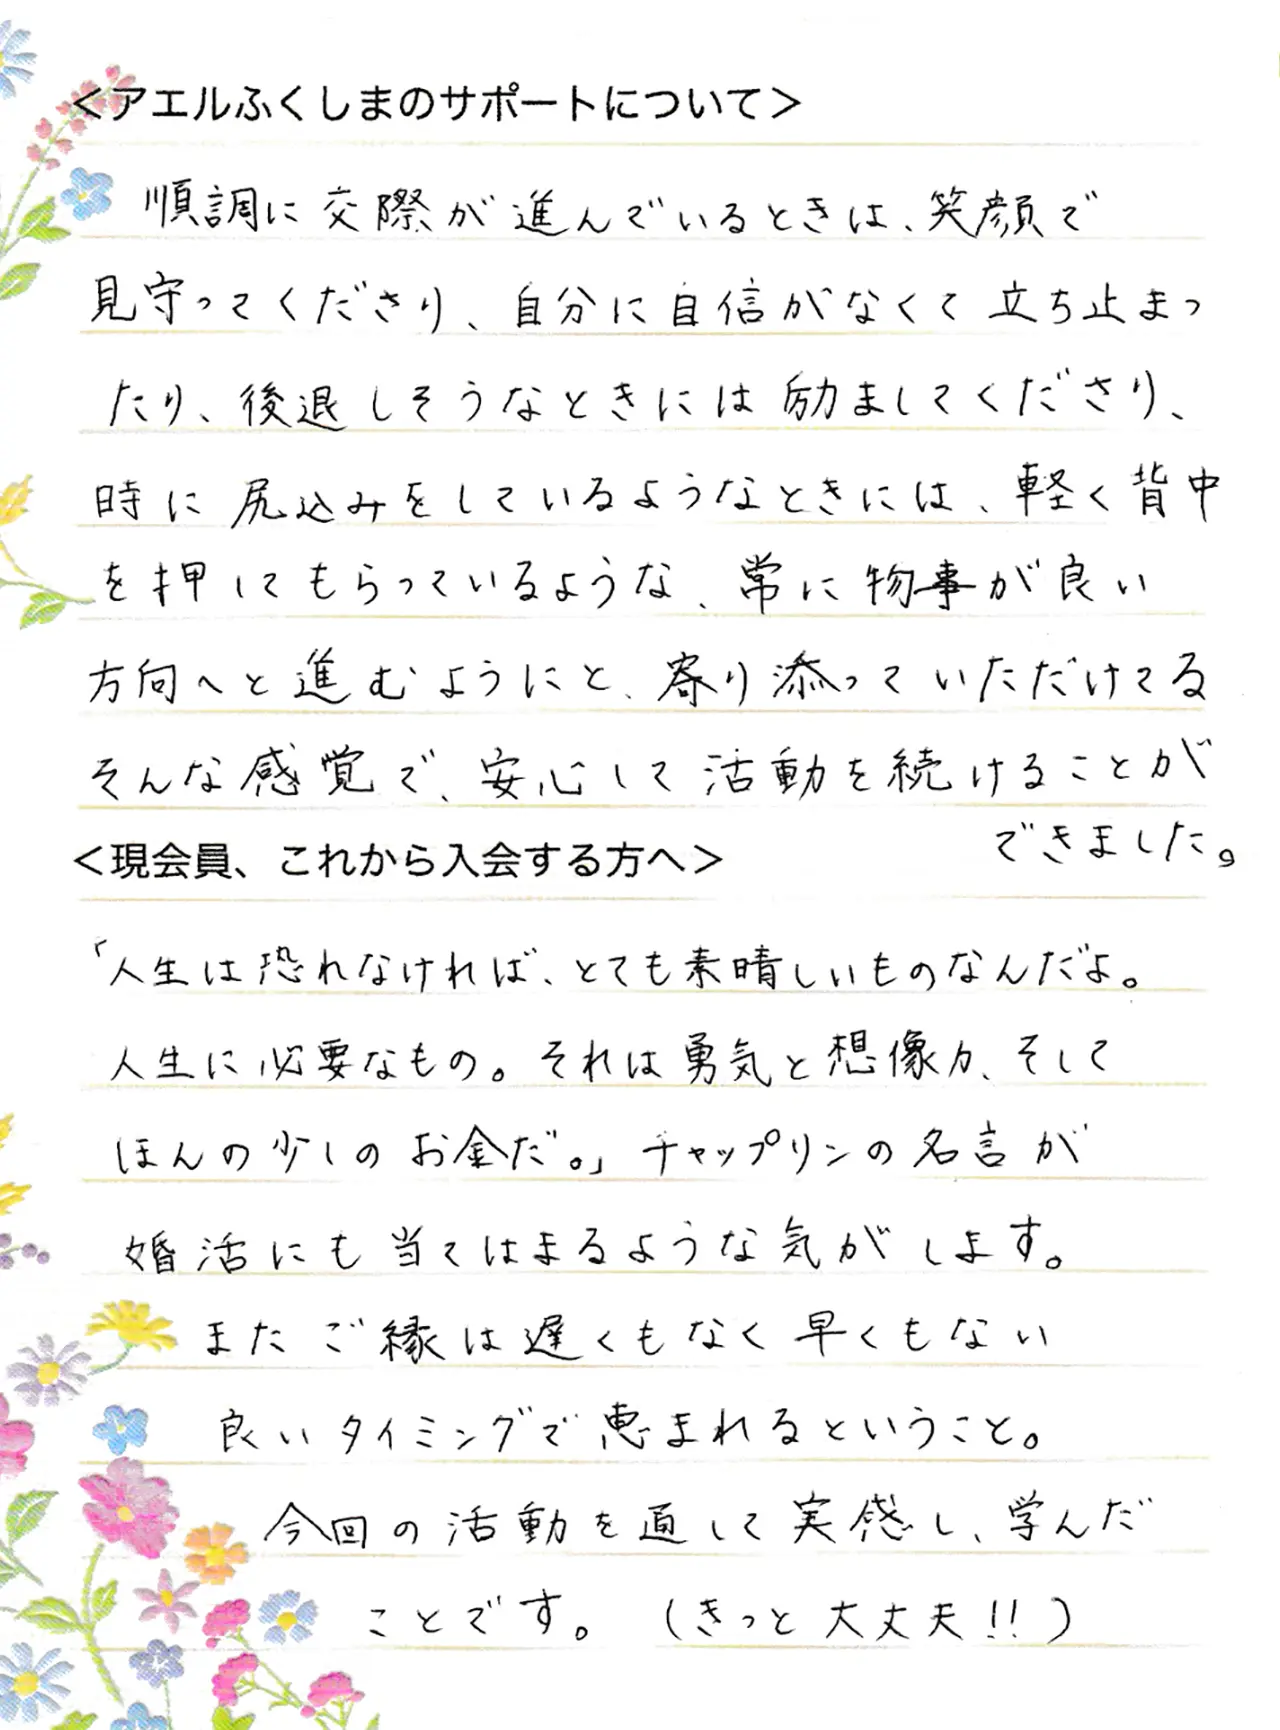 ＜アエルふくしまのサポートについて＞
順調に交際が進んでいるときは、笑顔で
見守ってくださり、自分に自信がなくて立ち止まっ
たり、後退しそうなときには励ましてくださり、
時に尻込みをしているようなときには、軽く背中
を押してもらっているような、常に物事が良い
方向へと進むようにと、寄り添っていただけてる
そんな感覚で、安心して活動を続けることが
できました。
＜現会員、これから入会する方へ＞
「人生は恐れなければ、とても素晴しいものなんだよ。
人生に必要なもの。それは勇気と想像力、そして
ほんの少しのお金だ。」チャップリンの名言が
婚活にも当てはまるような気がします。
またご縁は遅くもなく早くもない
良いタイミングで恵まれるということ。
今回の活動を通して実感し、学んだ
ことです。（きっと大丈夫!!）